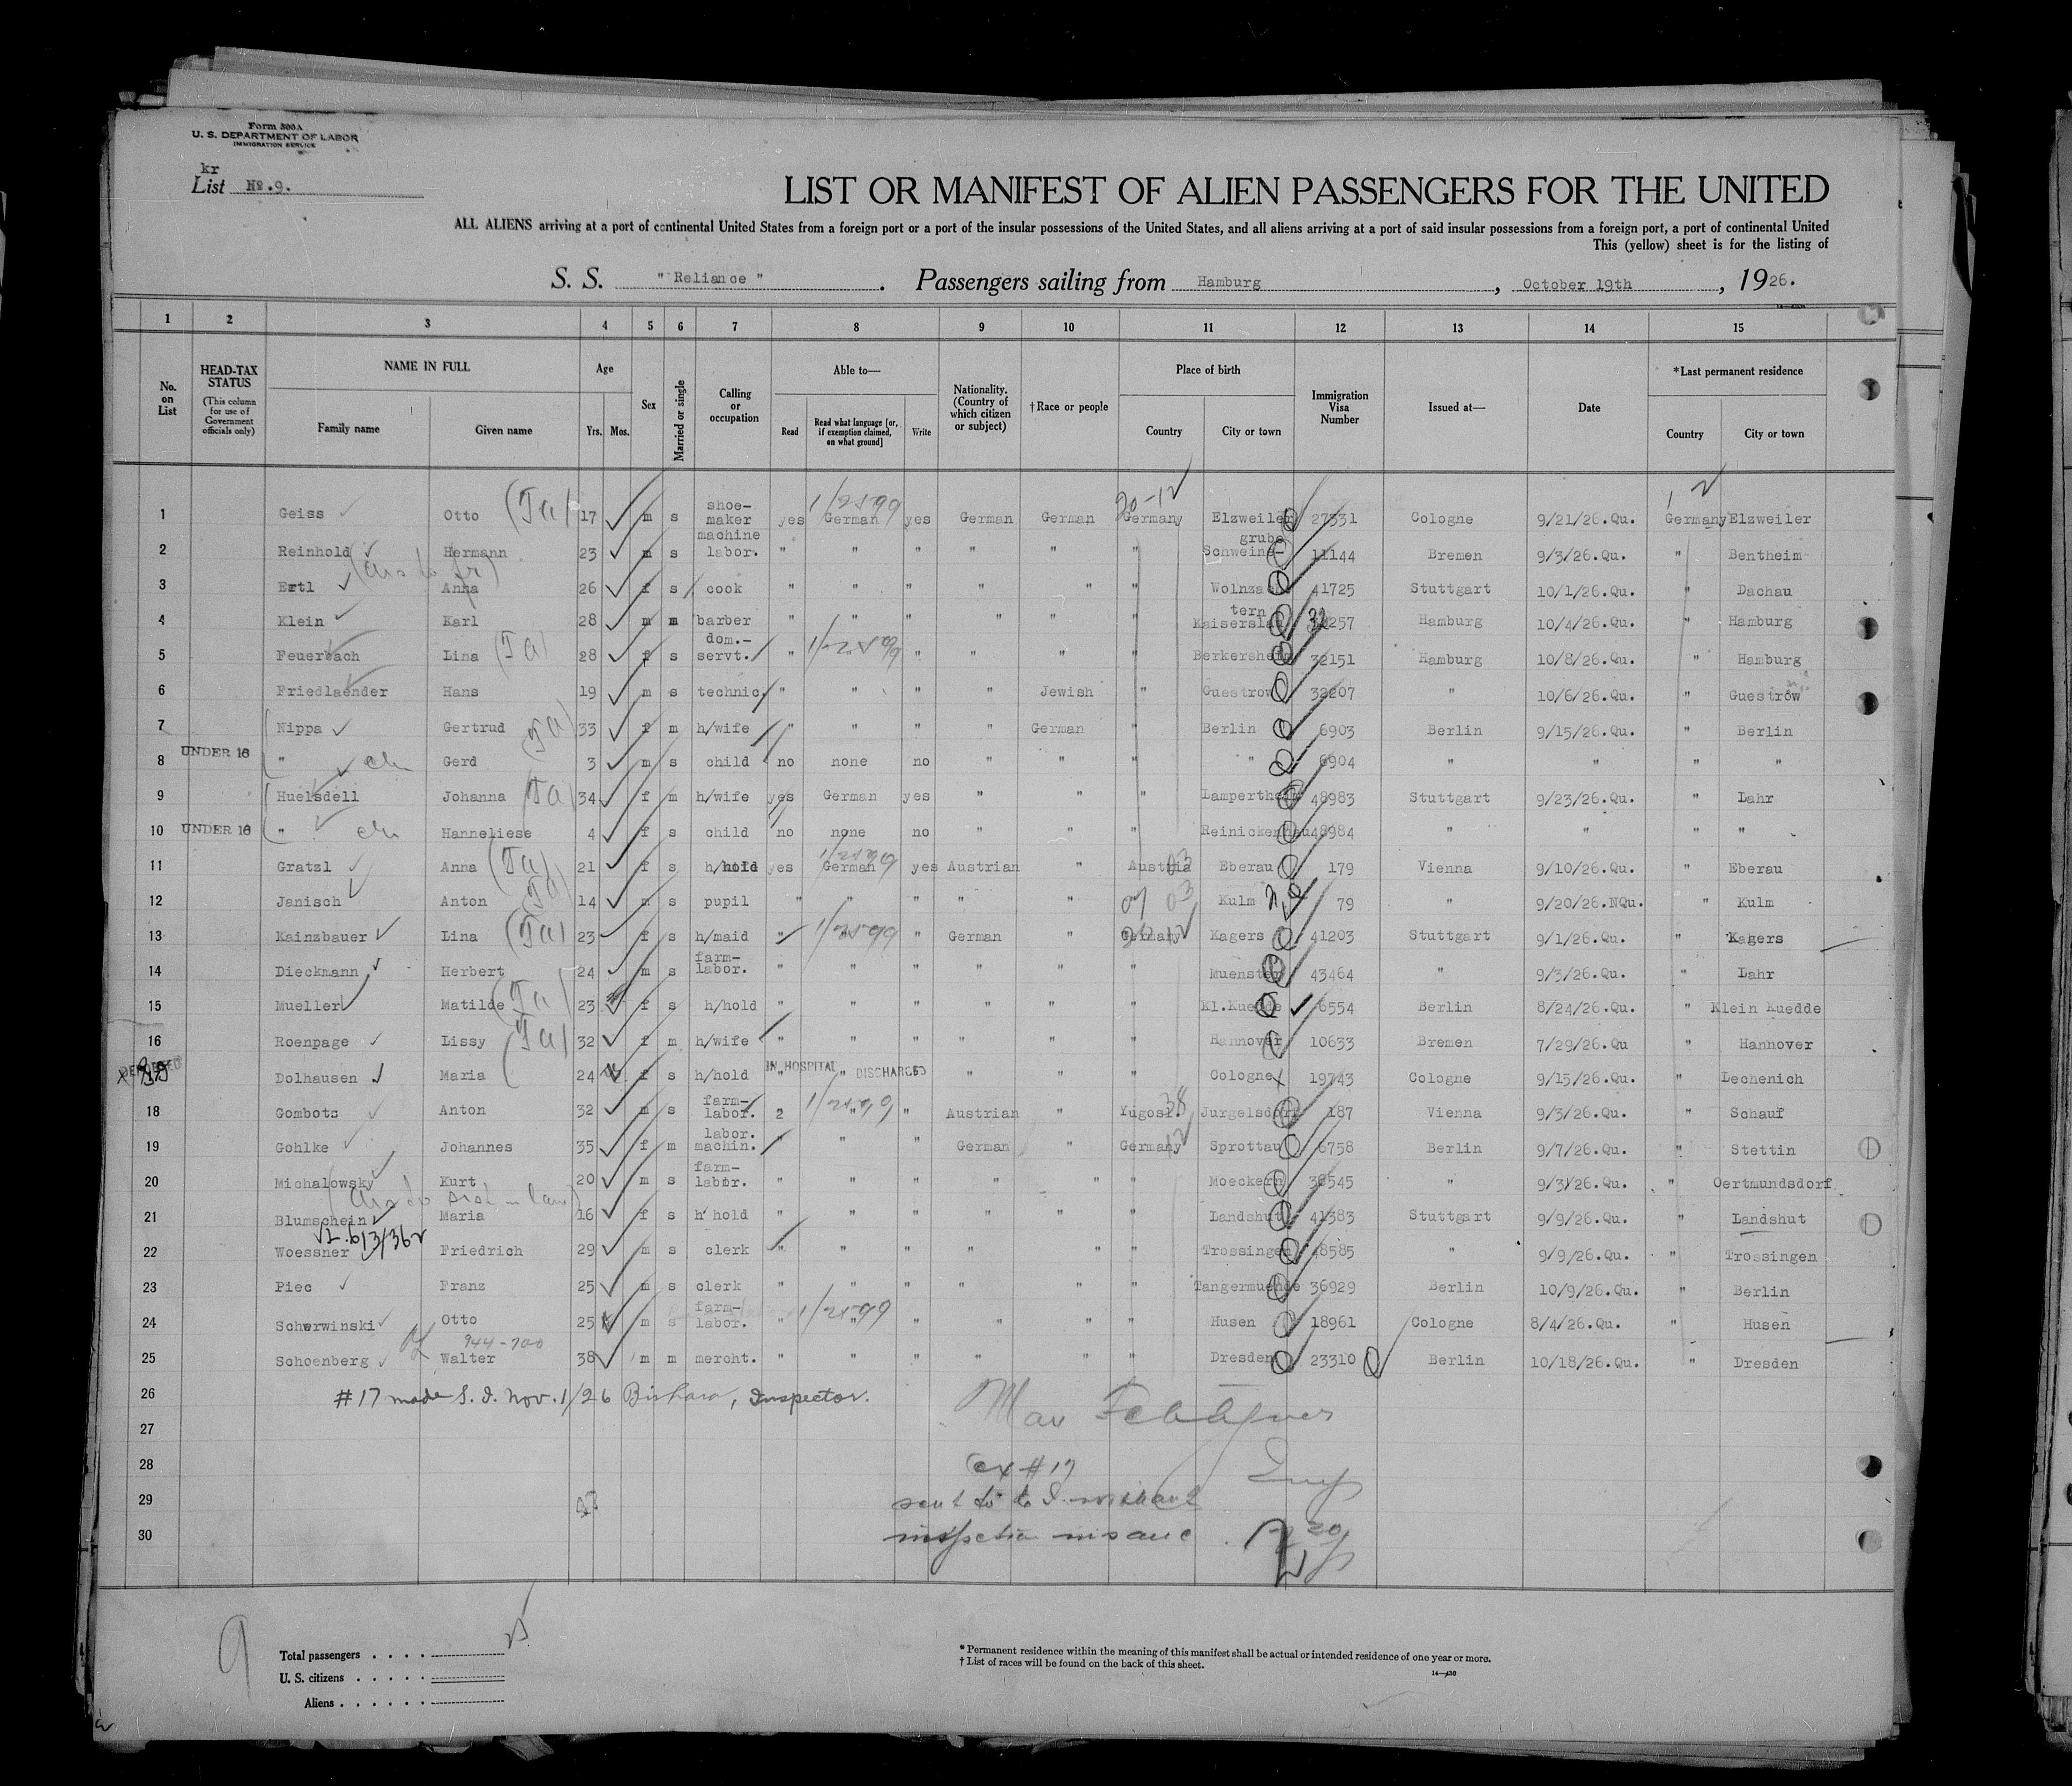 Form 500A
U. S. DEPARTMENT OF LABOR
IMMIGRATION SERVICE
kr
List No.9.
LIST OR MANIFEST OF ALIEN PASSENGERS FOR THE UNITED
ALL ALIENS arriving at a port of continental United States from a foreign port or a port of the insular possessions of the United States, and all aliens arriving at a port of said insular possessions from a foreign port, a port of continental United
This (yellow) sheet is for the listing of
S. S. "Reliance". Passengers sailing from Hamburg, October 19th, 1926.
1 2 3 4 5 6 7 8 9 10 11 12 13 14 15
No. on List
HEAD-TAX STATUS (This column for use of Government officials only)
NAME IN FULL Family name Given name
Age Yrs. Mos.
Sex
Married or single
Calling or occupation
Able to— Read Read what language [or, if exemption claimed, on what ground] Write
Nationality. (Country of which citizen or subject)
†Race or people
Place of birth Country City or town
Immigration Visa Number
Issued at—
Date
*Last permanent residence Country City or town
1 Geiss Otto 17 m s shoe-maker yes German yes German German Germany Elzweiler 27331 Cologne 9/21/26.Qu. Germany Elzweiler
2 Reinhold Hermann 23 m s machine labor. " " " " " " Schweinsgrube 11144 Bremen 9/3/26.Qu. " Bentheim
3 Ertl Anna 26 f s cook " " " " " " Wolnzach 41725 Stuttgart 10/1/26.Qu. " Dachau
4 Klein Karl 28 m m barber " " " " " " Kaiserslautern 257 Hamburg 10/4/26.Qu. " Hamburg
5 Feuerbach Lina 28 f s dom.-servt. " " " " " " Berkersheim 32151 Hamburg 10/8/26.Qu. " Hamburg
6 Friedlaender Hans 19 m s technic. " " " " Jewish " Guestrow 32207 " 10/6/26.Qu. " Guestrow
7 Nippa Gertrud 33 f m h/wife " " " " German " Berlin 6903 Berlin 9/15/26.Qu. " Berlin
UNDER 16
8 " Gerd 3 m s child no none no " " " " 6904 " " " "
9 Huelsdell Johanna 34 f m h/wife yes German yes " " " Lampertheim 48983 Stuttgart 9/23/26.Qu. " Lahr
10 UNDER 16 " Hanneliese 4 f s child no none no " " " 48984 " " " "
11 Gratzl Anna 21 f s h/hold yes German yes Austrian " Austria Eberau 179 Vienna 9/10/26.Qu. " Eberau
12 Janisch Anton 14 m s pupil " " " " " Kulm 79 " 9/20/26.NQu. " Kulm
13 Kainzbauer Lina 23 f s h/maid " " " German " Germany Kagers 41203 Stuttgart 9/1/26.Qu. " Kagers
14 Dieckmann Herbert 24 m s farm-labor. " " " " " " Muenster 43464 " 9/3/26.Qu. " Lahr
15 Mueller Matilde 23 f s h/hold " " " " " " Kl.Kuedde 6554 Berlin 8/24/26.Qu. " Klein Kuedde
16 Roenpage Lissy 32 f m h/wife " " " " " " Hannover 10633 Bremen 7/29/26.Qu " Hannover
Dolhausen Maria 24 f s h/hold IN HOSPITAL DISCHARGED Cologne 19743 Cologne 9/15/26.Qu. " Lechenich
18 Gombots Anton 32 m s farm-labor. 2 " " Austrian " Yugosl. Jurgelsdorf 187 Vienna 9/3/26.Qu. " Schauf
19 Gohlke Johannes 35 f m labor. machin. " " " German " Germany Sprottau 6758 Berlin 9/7/26.Qu. " Stettin
20 Michalowsky Kurt 20 m s farm-labor. " " " " " " Moeckern 38545 " 9/3/26.Qu. " Oertmundsdorf
21 Blumschein Maria 16 f s h'hold " " " " " " Landshut 41383 Stuttgart 9/9/26.Qu. " Landshut
22 Woessner Friedrich 29 m s clerk " " " " " " Trossingen 48585 " 9/9/26.Qu. " Trossingen
23 Piec Franz 25 m s clerk " " " " " " Tangermuende 36929 Berlin 10/9/26.Qu. " Berlin
24 Scherwinski Otto 25 m s farm-labor. " " " " " " Husen 18961 Cologne 8/4/26.Qu. " Husen
944-700
25 Schoenberg Walter 38 m m mercht. " " " " " " Dresden 23310 Berlin 10/18/26.Qu. " Dresden
26 #17 made S.I. Nov. 1/26 Inspector.
27
28 #17
29 sent to S I without
30 inspection insane
9
Total passengers
U. S. citizens
Aliens
* Permanent residence within the meaning of this manifest shall be actual or intended residence of one year or more.
† List of races will be found on the back of this sheet.